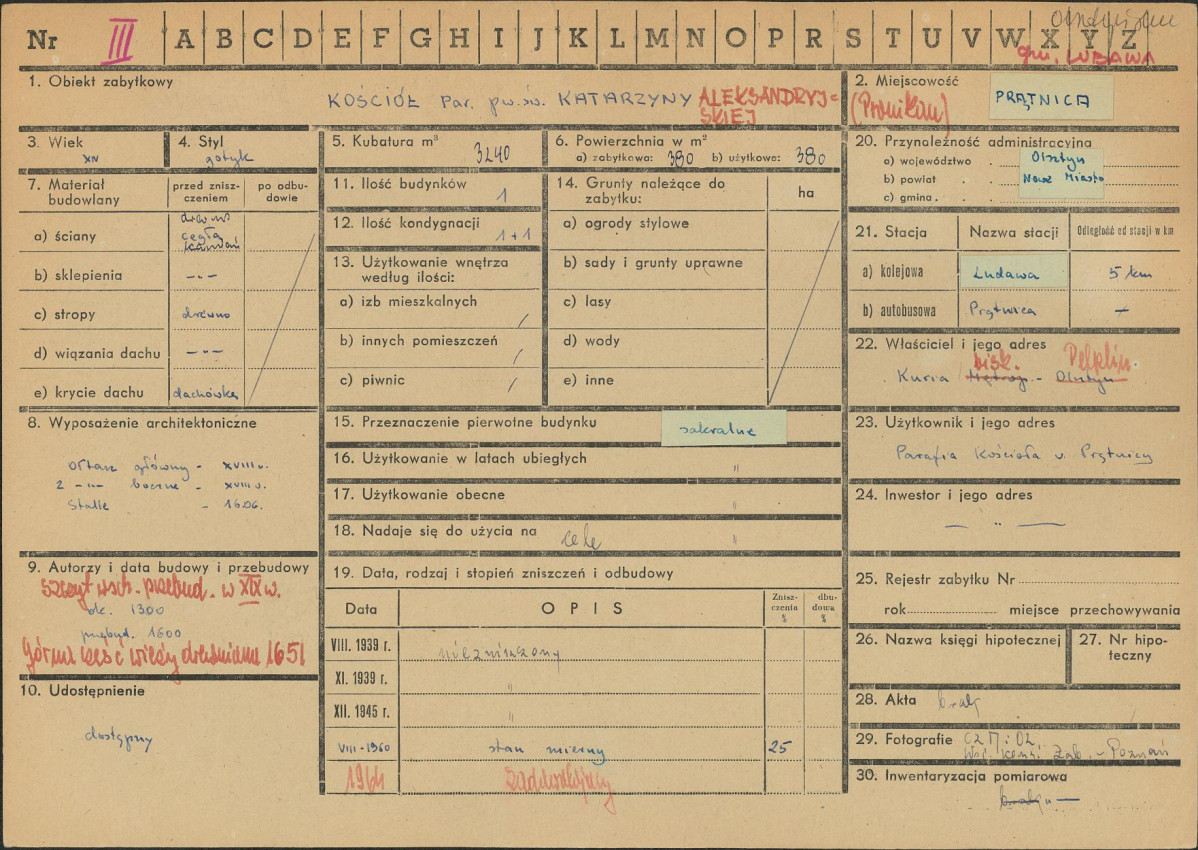 Nr III A B C D E F G H I J K L M N O P R S T U V W X Y Z
gm. LUBAWA
1. Obiekt zabytkowy
KOŚCIÓŁ Par. pw. św. KATARZYNY ALEKSANDRYJ=
SKIEJ
2. Miejscowość
PRĄTNICA
3. Wiek
XIV
4. Styl
gotyk
5. Kubatura m³ 3240
6. Powierzchnia w m²
a) zabytkowa: 380 b) użytkowa: 380
7. Materiał budowlany
przed znisz-
czeniem
po odbu-
dowie
a) ściany
cegła
kamień
b) sklepienia -„-
c) stropy drewno
d) wiązania dachu -„-
e) krycie dachu dachówka
8. Wyposażenie architektoniczne
Ołtarz główny - XVIII w.
2 -„- boczne - XVIII w.
Stalle - 1606.
9. Autorzy i data budowy i przebudowy
szczyt wsch. przebud. w XIX w.
ok. 1300
przebud. 1600
górna część wieży drewniana 1651
10. Udostępnienie
dostępny
11. Ilość budynków 1
12. Ilość kondygnacji 1+1
13. Użytkowanie wnętrza
według ilości:
a) izb mieszkalnych /
b) innych pomieszczeń /
c) piwnic /
14. Grunty należące do
zabytku:
ha
a) ogrody stylowe
b) sady i grunty uprawne
c) lasy
d) wody
e) inne
15. Przeznaczenie pierwotne budynku sakralne
16. Użytkowanie w latach ubiegłych „
17. Użytkowanie obecne „
18. Nadaje się do użycia na cele „
19. Data, rodzaj i stopień zniszczeń i odbudowy
Data
OPIS
Znisz-
czenia
%
dbu-
dowa
%
VIII. 1939 r. niezniszczony
XI. 1939 r. „
XII. 1945 r. „
VIII-1960 stan mierny 25
1964 zadawalający
20. Przynależność administracyjna
a) województwo Olsztyn
b) powiat Nowe Miasto
c) gmina
21. Stacja
Nazwa stacji
Odległość od stacji w km
a) kolejowa Lubawa 5 km
b) autobusowa Prątnica
22. Właściciel i jego adres
bisk. Pelplin.
Kuria - Olsztyn
23. Użytkownik i jego adres
Parafia Kościoła w Prątnicy
24. Inwestor i jego adres
— „ —
25. Rejestr zabytku Nr
rok miejsce przechowywania
26. Nazwa księgi hipotecznej
27. Nr hipo-
teczny
28. Akta brak
29. Fotografie
Woj. Kons. Zab. - Poznań
30. Inwentaryzacja pomiarowa